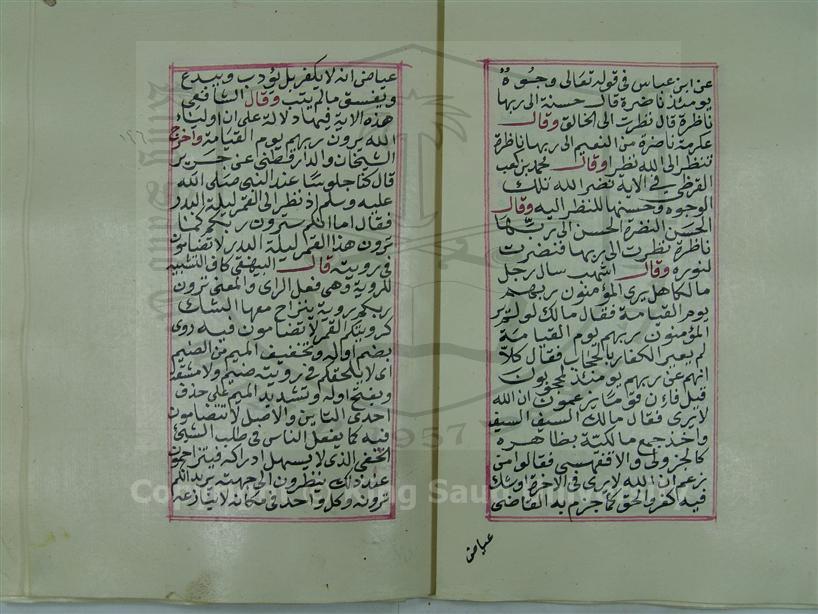 عن ابن عباس في قوله تعالى وجوه
يومئذ ناضرة قال حسنة الى ربها
ناظرة قال نظرت الى الخالق وقال
عكرمة ناضرة من النعيم الى ربها ناظرة
تنظر الى الله نظرا وقال محمد بن كعب
القرظي في الاية نضر الله تلك
الوجوه وحسنها للنظر اليه وقال
الحسن النضرة الحسن الى ربها
ناظرة نظرت الى ربها فنضرت
لنوره وقال اشهب سال رجل
مالكا هل يرى المؤمنون ربهم
يوم القيامة فقال مالك لو لم ير
المؤمنون ربهم يوم القيامة
لم يعير الكفار بالحجاب فقال كلا
انهم عن ربهم يومئذ لمحجوبون
قيل فان قوما يزعمون ان الله
لا يرى فقال مالك السيف السيف
واخذ جمع مالكية بظاهره
كالجزولي والاقفهسي فقالوا من
زعم ان الله لا يرى في الاخرة او شك
فيه كفر والحق كما جزم به القاضي
عياض
عياض انه لا يكفر بل يؤدب ويبدع
ويفسق ما لم يتب وقال الشافعي
هذه الاية فيها دلالة على ان اولياء
الله يرون ربهم يوم القيامة واخرج
الشيخان والدارقطني عن جرير
قال كنا جلوسا عند النبي صلى الله
عليه وسلم اذ نظر الى القمر ليلة البدر
فقال اما انكم سترون ربكم كما
ترون هذا القمر ليلة البدر لا تضامون
في رويته قال البيهقي كاف التشبيه
للروية وهي فعل الراي والمعنى ترون
ربكم روية ينزاح معها الشك
كرويتكم القمر لا تضامون فيه روي
بضم اوله وتخفيف الميم من الضيم
اي لا يلحقكم في رويته ضيم ولا مشقة
وبفتح اوله وتشديد الميم على حذف
احدى التاين والاصل لا تتضامون
فيه كما يفعل الناس في طلب الشيئ
الخفي الذي لا يسهل ادراكه فيتزاحمون
عند ذلك ينظرون الى جهته يريد انكم
ترونه وكل واحد في مكانه لا ينازعه
Copyright © King Saud University
1957